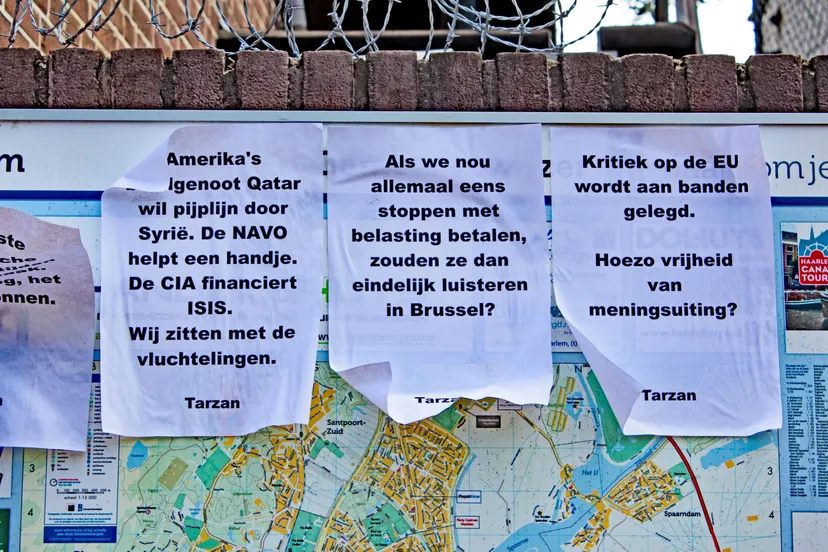 ste
che
g, het
onnen.
Amerika's
genoot Qatar
wil pijplijn door
Syrië. De NAVO
helpt een handje.
De CIA financiert
ISIS.
Wij zitten met de
vluchtelingen.
Tarzan
Als we nou
allemaal eens
stoppen met
belasting betalen,
zouden ze dan
eindelijk luisteren
in Brussel?
Tarza
Kritiek op de EU
wordt aan banden
gelegd.
Hoezo vrijheid
van
meningsuiting?
Tarzan
m
omje
HAARLEM
CANAL
TOURS
Santpoort-
Zuid
Het IJ
Spaarndam
Spaarne
3
4
3
4